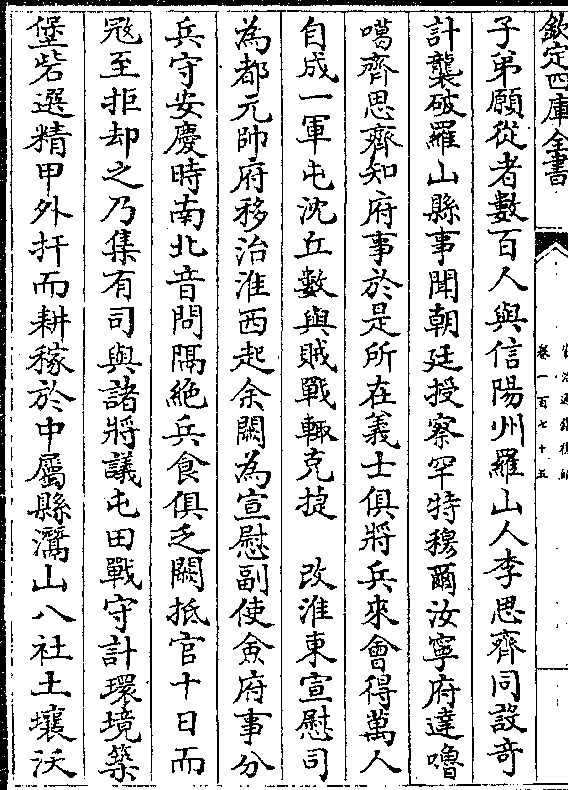 欽定四庫全書
卷一百七十五
子弟願從者數百人與信陽州羅山人李思齊同設奇
計襲破羅山縣事聞朝廷授察罕特穆爾汝寧府達嚕
噶齊思齊知府事於是所在義士俱將兵來會得萬人
自成一軍屯沈丘數與賊戰輒克捷　改淮東宣慰司
為都元帥府移治淮西起余闕為宣慰副使僉府事分
兵守安慶時南北音問隔絶兵食俱乏闕抵官十日而
寇至拒却之乃集有司與諸將議屯田戰守計環境築
堡砦選精甲外扞而耕稼於中屬縣灊山八社土壤沃